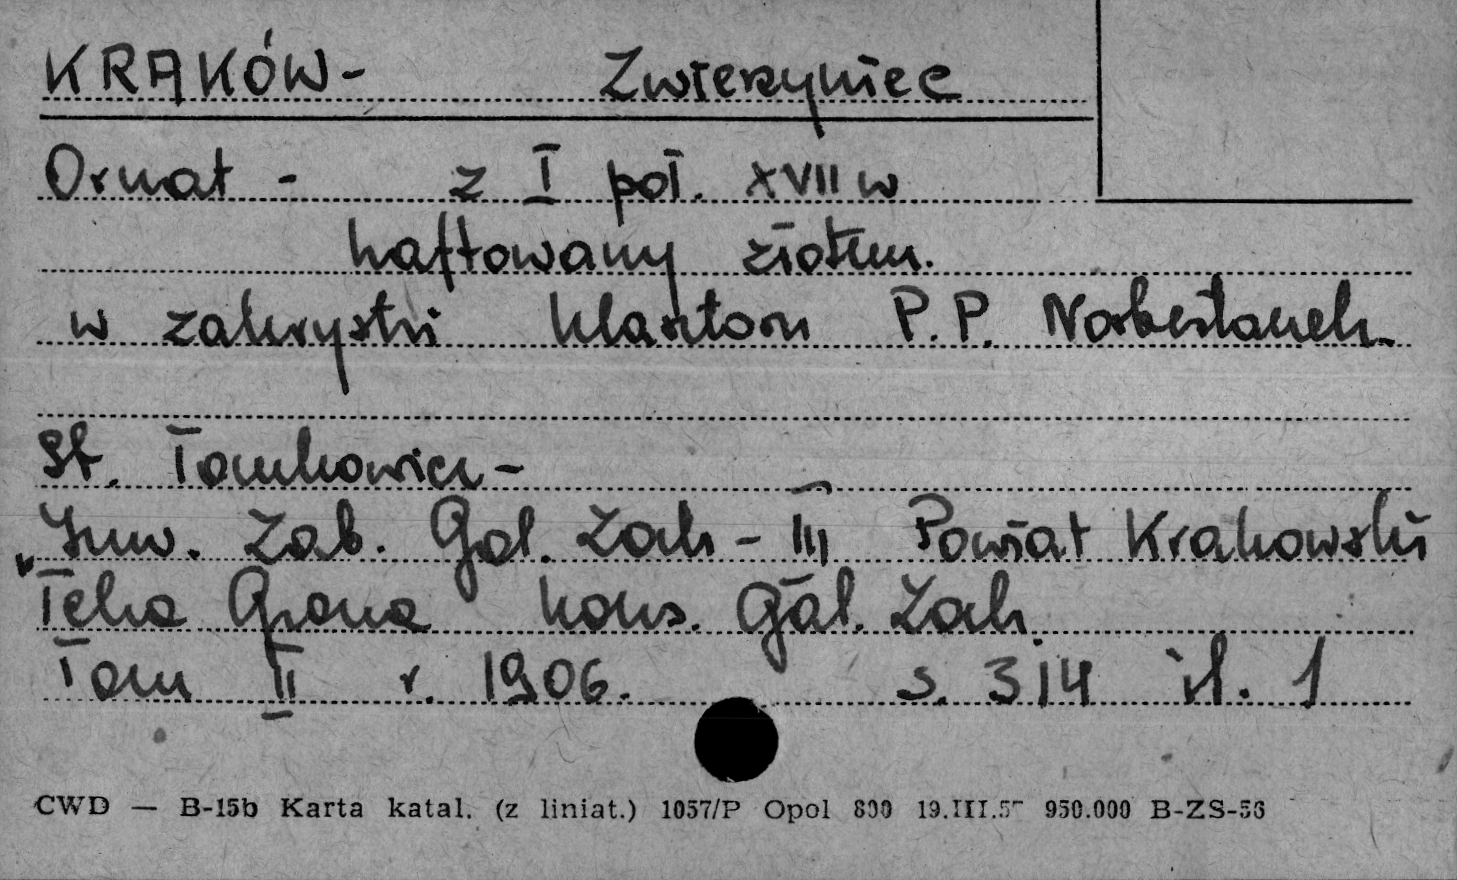 KRAKÓW- Zwierzyniec
Ornat - z I poł. XVII w
haftowany złotem.
w zakrystii klasztoru P.P. Norbertanek
St. Tomkowicz -
"Inw. Zab. Gal. Zach - III Powiat Krakowski
Teka Grona kons. Gal. Zach.
Tom II r. 1906. s. 314 il. 1
CWD — B-15b Karta katal. (z liniat.) 1057/P Opol 800 19.III.57 950.000 B-ZS-56